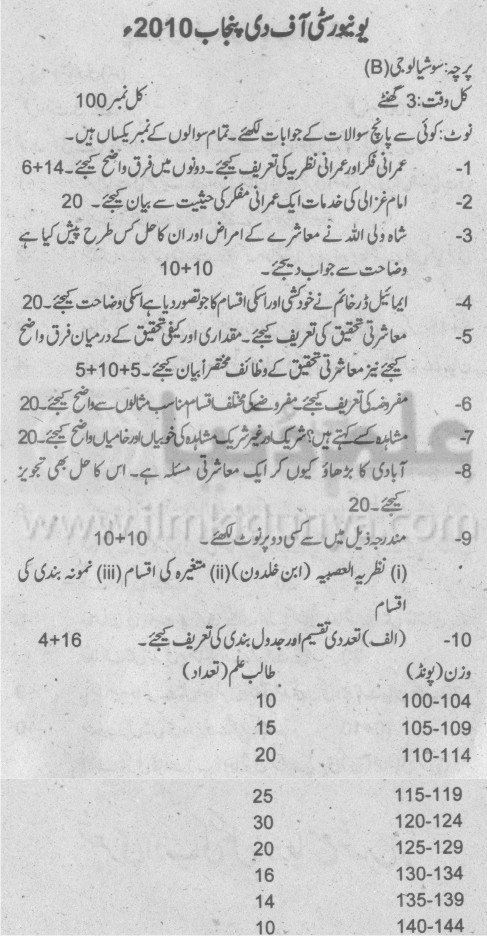 یونیورسٹی آف دی پنجاب 2010ء
پرچہ: سوشیالوجی (B)
کل وقت: 3 گھنٹے کل نمبر 100
نوٹ: کوئی سے پانچ سوالات کے جوابات لکھئے۔ تمام سوالوں کے نمبر یکساں ہیں۔
1- عمرانی فکر اور عمرانی نظریہ کی تعریف کیجئے۔ دونوں میں فرق واضح کیجئے۔ 14+6
2- امام غزالی کی خدمات ایک عمرانی مفکر کی حیثیت سے بیان کیجئے۔ 20
3- شاہ ولی اللہ نے معاشرے کے امراض اور ان کا حل کس طرح پیش کیا ہے
وضاحت سے جواب دیجئے۔ 10+10
4- ایمائیل ڈرخائم نے خودکشی اور اسکی اقسام کا جو تصور دیا ہے اسکی وضاحت کیجئے۔ 20
5- معاشرتی تحقیق کی تعریف کیجئے۔ مقداری اور کیفی تحقیق کے درمیان فرق واضح
کیجئے نیز معاشرتی تحقیق کے وظائف مختصراً بیان کیجئے۔ 5+10+5
6- مفروضہ کی تعریف کیجئے۔ مفروضے کی مختلف اقسام مناسب مثالوں سے واضح کیجئے۔ 20
7- مشاہدہ کسے کہتے ہیں؟ شریک اور غیر شریک مشاہدہ کی خوبیاں اور خامیاں واضح کیجئے۔ 20
8- آبادی کا بڑھاؤ کیوں کر ایک معاشرتی مسئلہ ہے۔ اس کا حل بھی تجویز
کیجئے۔ 20
9- مندرجہ ذیل میں سے کسی دو پر نوٹ لکھئے۔ 10+10
(i) نظریہ العصبیہ (ابن خلدون) (ii) متغیرہ کی اقسام (iii) نمونہ بندی کی
اقسام
10- (الف) تعددی تقسیم اور جدول بندی کی تعریف کیجئے۔ 16+4
وزن (پونڈ) طالب علم (تعداد)
100-104 10
105-109 15
110-114 20
115-119 25
120-124 30
125-129 20
130-134 16
135-139 14
140-144 10
علم کی دنیا
www.ilmkidunya.com